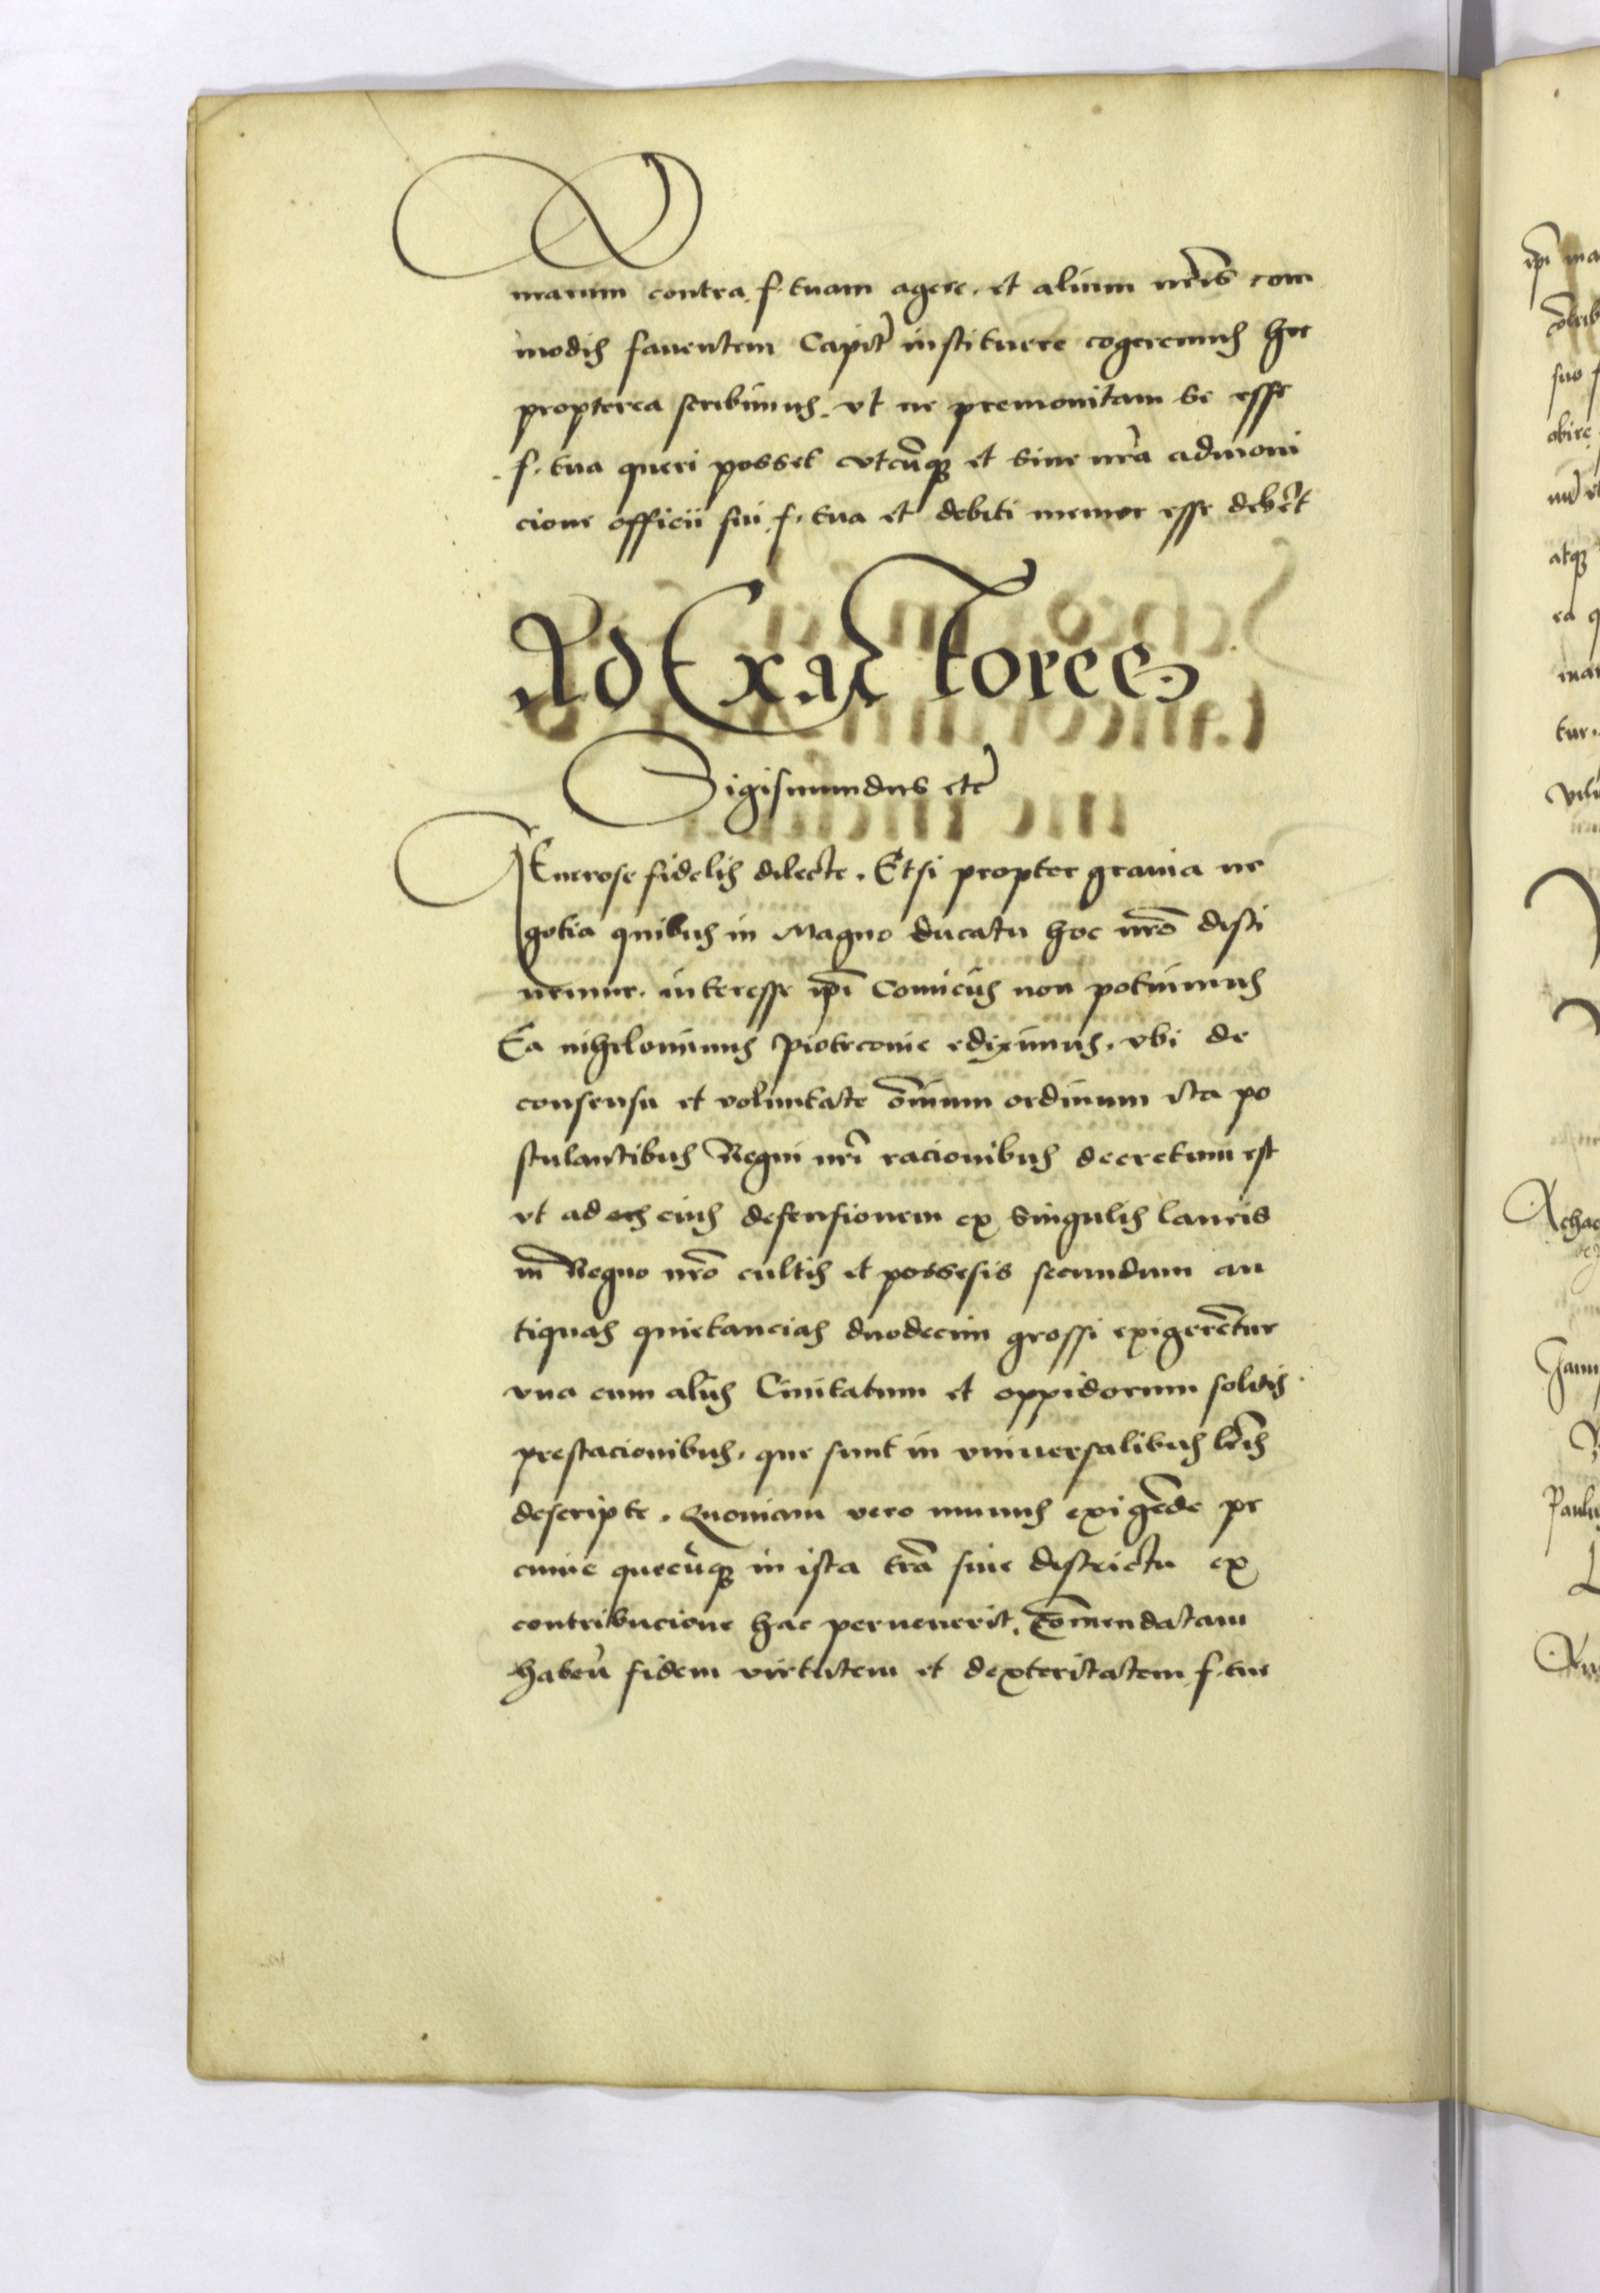 marum contra f. tuam agere. et alium nr̃is com
modis fauentem Capit̃ instituere cogeremus hec
propterea scribimus. vt ne premonitam se esse
f. tua queri posset vtcũq̃ et sine nr̃a admoni
cione officii sui f. tua et debiti memor esse debet
Ad Exactores
Sigismundus etc̃
Generose fidelis dilecte. Etsi propter grauia ne
gotia quibus in Magno ducatu hoc nr̃o disti
nemur. interesse ip̃i Comicijs non potuimus
Ea nihilominus Piotrconie ediximus. vbi de
consensu et voluntate om̃ium ordinum ita po
stulantibus Regni nr̃i racionibus decretum est
vt ad eius defensionem ex singulis laneis
in Regno nr̃o cultis et possesis secundum an
tiquas quietancias duodecim grossi exigerẽtur
vna cum alijs Ciuitatum et oppidorum solitis
prestacionibus. que sunt in vniuersalibus lr̃is
descripte. Quoniam vero munus exigẽde pe
cunie quecũq̃ in ista trã siue districtu ex
contribucione hac peruenerit. com̃endatam
haben̄ fidem virtutem et dexteritatem f. tue
ip̃i
suo
obire
atq̃
ea
tur.